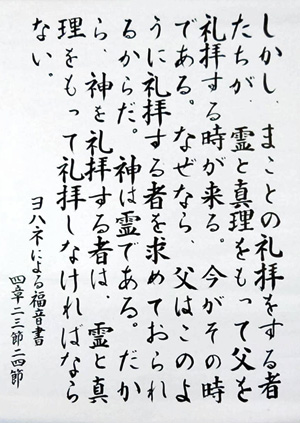 しかし、まことの礼拝をする者
たちが、霊と真理をもって父を
礼拝する時が来る。今がその時
である。なぜなら、父はこのよ
うに礼拝する者を求めておられ
るからだ。神は霊である。だか
ら、神を礼拝する者は、霊と真
理をもって礼拝しなければなら
ない。
ヨハネによる福音書
四章二三節二四節